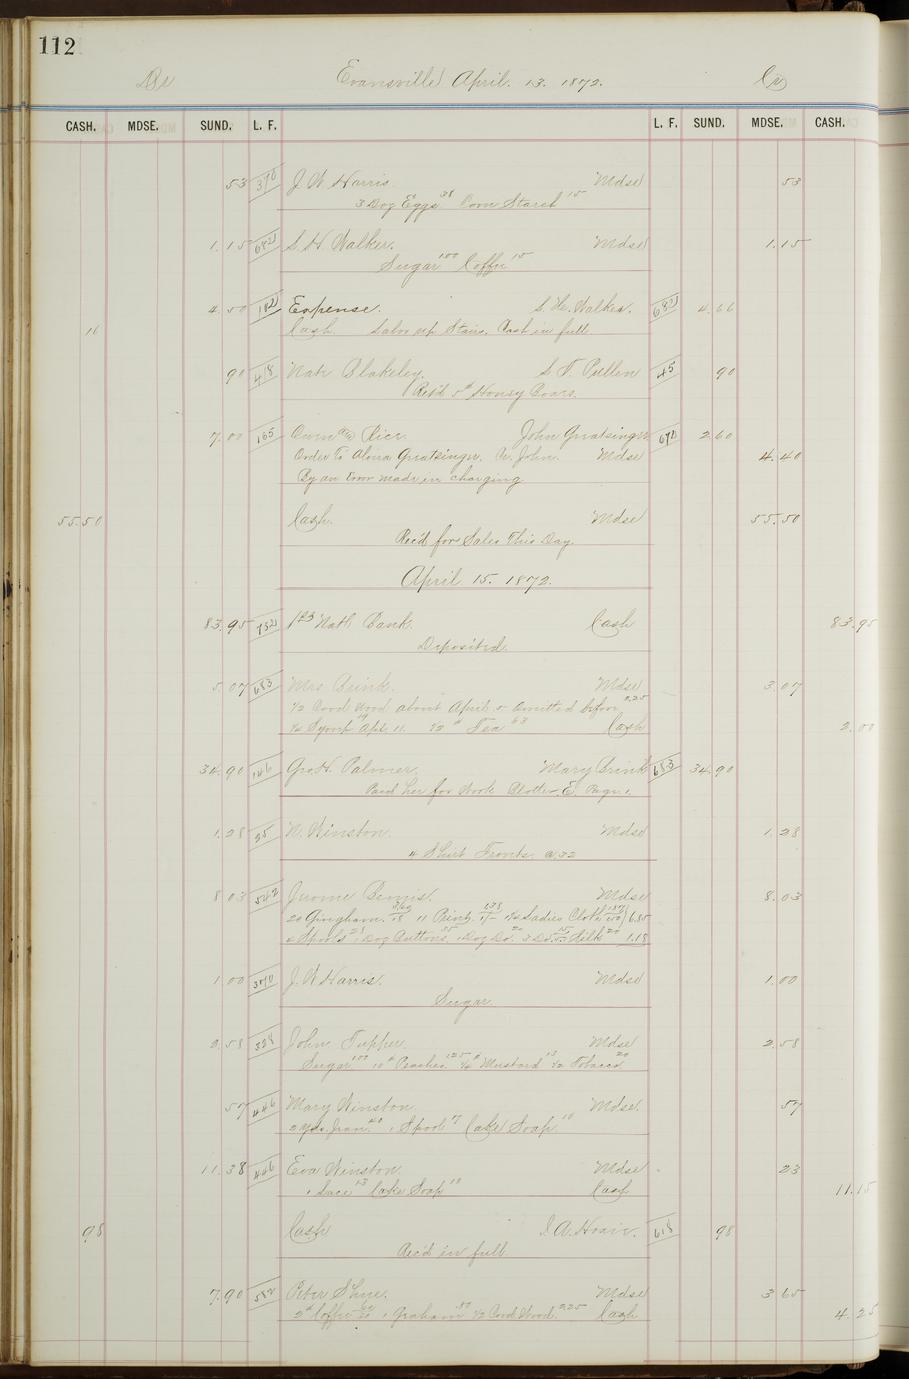 112
Dr Evansville April. 13. 1872. Cr
CASH. MDSE. SUND. L. F. L. F. SUND. MDSE. CASH.
53 370 J. W. Harris. Mdse 53
3 Doz Eggs 38 Corn Starch 15
1.15 682 S. H. Walker. Mdse 1.15
Sugar 1.00 Coffee 15
4.50 182 Expense. S. H. Walker. 682 4.66
16 Cash. Labor up Stairs. Cash in full
90 418 Nate Blakeley. S. T. Pullen 45 90
Rec'd 5# Honey
7.00 165 Rice. John Greatsinger 672 2.60
Order To Greatsinger. John. Mdse 4.40
By an Error made in charging
55.50 Cash. Mdse 55.50
Rec'd for Sales This Day.
April 15. 1872.
83.95 752 1st Natl Bank. Cash 83.95
Deposited.
5.07 683 Mrs Brink. Mdse 3.07
1/2 Cord Wood about April 5 omitted before 2.25
1/4 Syrup 19 Apr. 11. 1/2 # Tea 63 Cash 2.00
34.90 146 Geo. H. Palmer. Mary Brink 683 34.90
Paid her for Work Blotter. E. Page 1.
1.28 25 N. Winston. Mdse 1.28
4 Shirt Fronts. @ 32
8.03 542 Jerome Bemis. Mdse 8.03
20 Gingham. 3.60 18 11 Print. 1.38 1 1/2 Ladies Cloth 6.85
Spools 28 1 Doz Buttons. 55 1 Doz Do. 20 3 Do. 15 Silk 20 1.18
1.00 370 J. W. Harris. Mdse 1.00
Sugar.
2.58 328 John Tupper. Mdse 2.58
Sugar 1.00 10# Peaches. 1.25 1/4# Mustard 13 1/2 Tobacco. 20
57 446 Mary Winston. Mdse. 57
2 yds. Jean. 40 1 Spool 7 Cake Soap. 10
11.38 446 Eva Winston. Mdse 23
1 Lace 13 Cake Soap 10 Cash 11.15
98 Cash 618 98
Rec'd in full.
7.90 582 Peter Shye. Mdse 3.65
2# Coffee 60 1 Graham 80 1/2 Cord Wood. 2.25 Cash 4.25